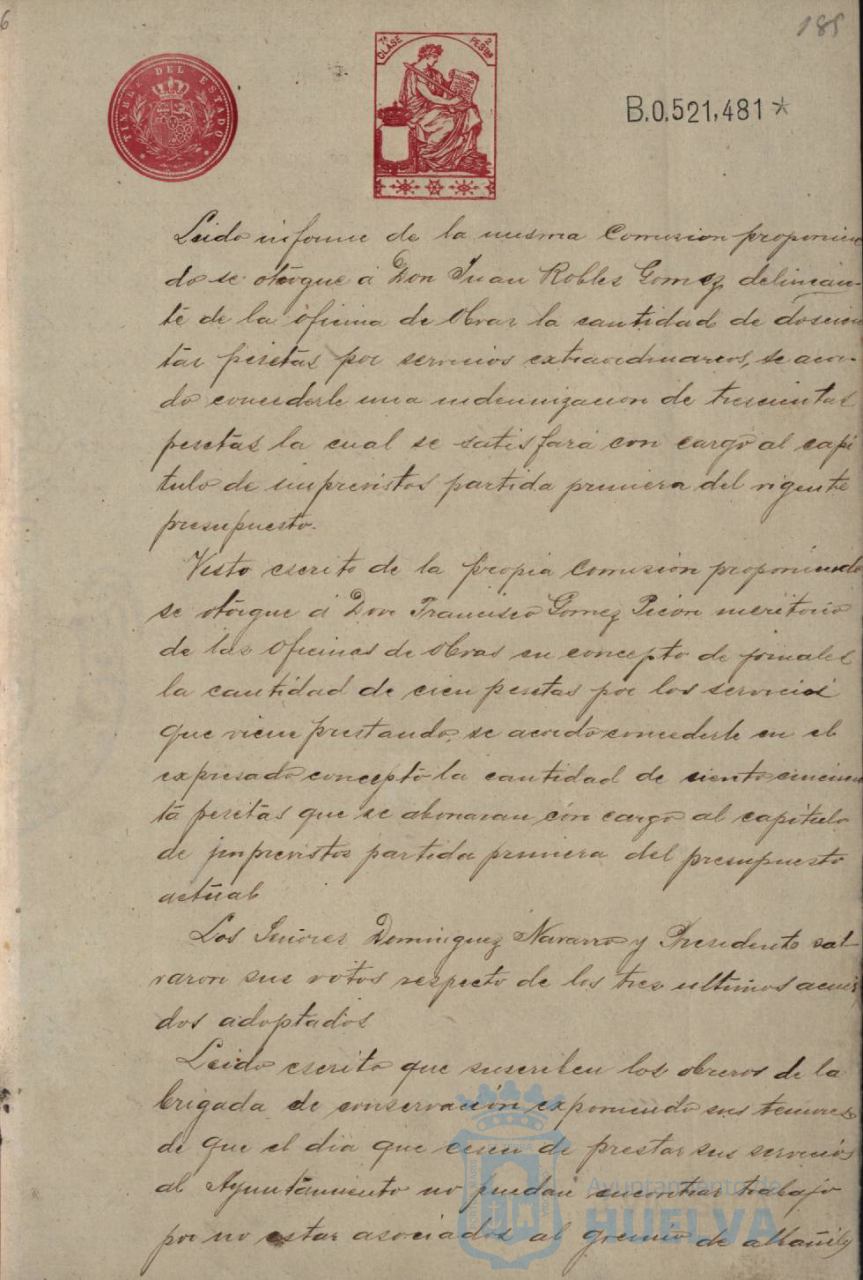 6
185
TIMBRE DEL ESTADO
7ª CLASE
2 PESETAS
B.0.521,481*
Leido informe de la misma Comision proponien
do se otorgue á Don Juan Robles Gomez delinean-
te de la oficina de Obras la cantidad de doscien
tas pesetas por servicios extraordinarios, se acor-
do concederle una indemnizacion de trescientas
pesetas la cual se satisfará con cargo al capi
tulo de imprevistos partida primera del vigente
presupuesto.
Visto escrito de la propia Comisión proponiendo
se otorgue á Don Francisco Gomez Picón meritorio
de las Oficinas de Obras en concepto de jornales
la cantidad de cien pesetas por los servicios
que viene prestando, se acordo concederle en el
expresado concepto la cantidad de ciento cincuen
ta pesetas que se abonaran con cargo al capitulo
de imprevistos partida primera del presupuesto
actual
Los Señores Dominguez Navarro y Presidente sal-
varon sus votos respecto de los tres ultimos acuer
dos adoptados
Leido escrito que suscriben los obreros de la
brigada de conservación exponiendo sus temores
de que el dia que cesen de prestar sus servicios
al Ayuntamiento no puedan encontrar trabajo
por no estar asociados al gremio de albañiles
Ayuntamiento de
HUELVA